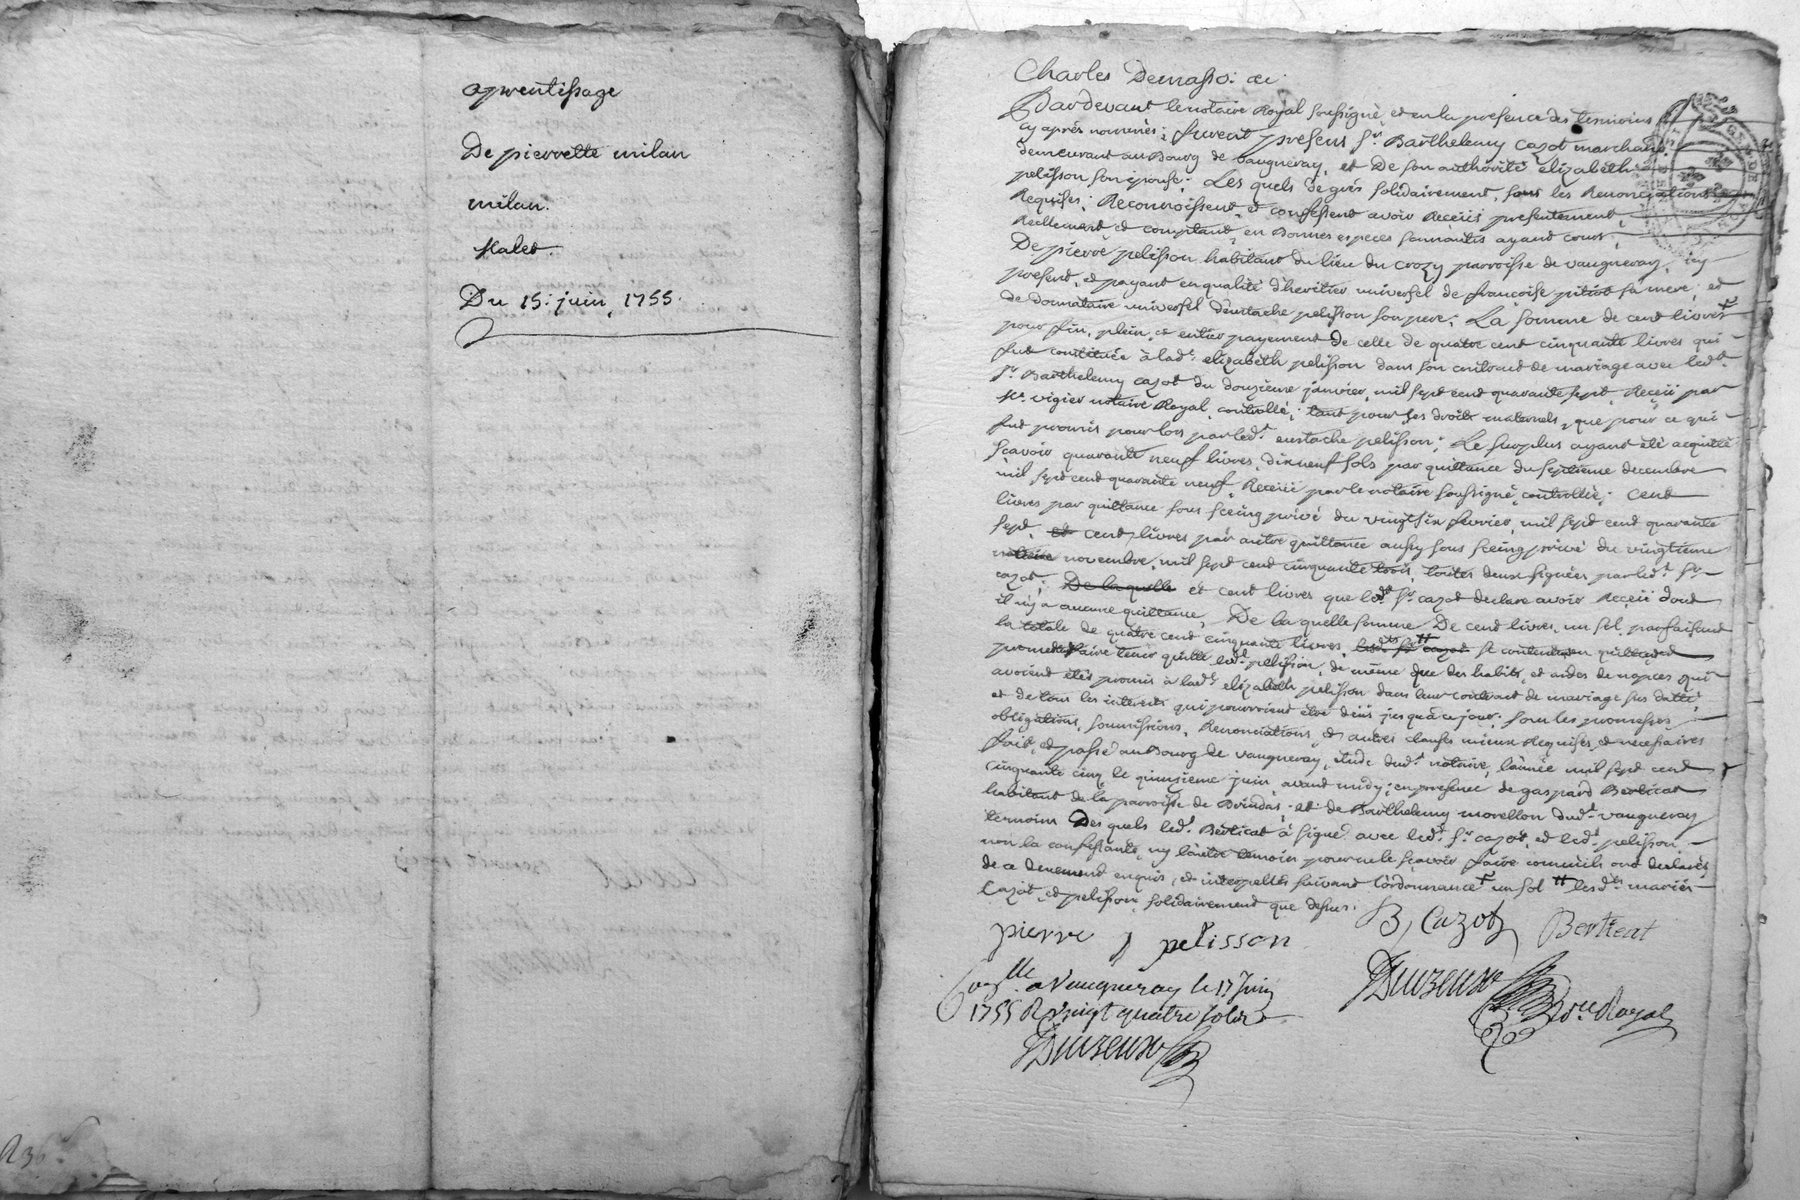 aprentissage
De pierrette milan
milan.
Malet.
Du 15: juin, 1755.
Charles Demasso: &c:
Pardevant le notaire Royal soussigné, et en la presence des temoins
cy aprés nommés; furent presens sr. Barthelemy cazot marchand
demeurant au Bourg de vaugneray, et De son authorité elizabeth
pelisson son epouse; Les quels de grés solidairement, sous les Renonciations
Requises; Reconnoissent, et confessent avoir Receüs presentement,
Réellement et comptant, en Bonnes especes sonnantes ayant cours,
De pierre pelisson habitant du lieu du crozy parroisse de vaugneray, icy
present, et payant en qualité d'heritier universel de françoise pitiot sa mere; et
de donnataire universel d'eustache pelisson son pere; La somme de cent livres
pour fin, plein, et entier payement de celle de quatre cent cinquante livres qui
fut constituée à lad: elizabeth pelisson dans son contract de mariage avec led.t
sr. Barthelemy cazot du douzieme janvier, mil sept cent quarante sept, Receü par
me. vigier notaire Royal, controllé; tant pour ses droits maternels, que pour ce qui
fut promis pour lors par led.t eustache pelisson; Le surplus ayant été acquitté
scavoir quarante neuf livres, dix neuf sols par quittance du septieme decembre
mil sept cent quarante neuf, Receüe par le notaire soussigné, controllée; cent
livres par quittance sous seing privé du vingt six fevrier, mil sept cent quarante
sept, et cent livres par autre quittance aussy sous seing privé du vingtieme
notaire novembre, mil sept cent cinquante trois, toutes deux signées par led.t sr
cazot; De laquelle et cent livres que led.t sr. cazot declare avoir Receü dont
il n'y a aucune quittance, De la quelle somme De cent livres, un sol, parfaisant
la totale de quatre cent cinquante livres, lesd.ts sr. cazot se contentent quittent
promettent faire tenir quitte led.t pelisson, de même que des habits, et autres de nopces qui
avoient étés promis à lad.t elizabeth pelisson dans leur contract de mariage sus datté;
et de tous les interets qui pourroient être deüs jusqu'à ce jour. sous les promesses
obligations, soumissions, Renonciations, et autres clauses mieux Requises, et necessaires
fait, et passé au Bourg de vaugneray, étude dud.t notaire, l'année mil sept cent
cinquante cinq le quinzieme juin, avant midy; en presence de gaspard Berticat
habitant de la parroisse de Brindas, et de Barthelemy morellon dud.t vaugneray
temoins Des quels led.t Berticat à signé avec led.t sr. cazot, et led.t pelisson
non la confessante, ny l'autre temoin pour ne le sçavoir faire comm'ils ont declarés
de ce duement enquis, et interpellés suivant l'ordonnance + un sol # lesd.ts mariés
Cazot, et pelisson, solidairement que dessus.
B, Cazot Berticat
pierre pelisson
Conllé a Vaugneray le 17 Juin
1755 R vingt quatre sols
nore Royal